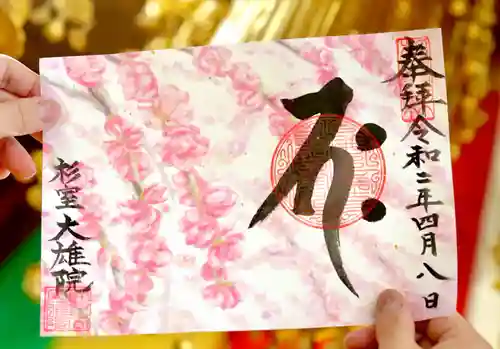 奉拝 令和二年四月八日
杉室 大雄院